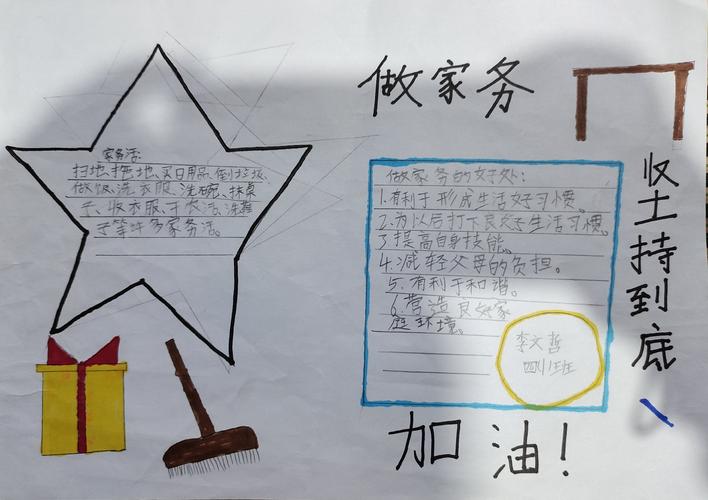 做家务
家务活:
扫地、拖地、买日用品、倒垃圾、
做饭、洗衣服、洗碗、抹桌
子、收衣服、干农活、洗鞋
子等许多家务活。
做家务的好处:
1.有利于形成生活好习惯。
2.为以后打下良好生活习惯。
3.提高自身技能。
4.减轻父母的负担。
5.有利于和谐。
6.营造良好家
庭环境。
李文哲
四(1)班
坚持到底
加油!